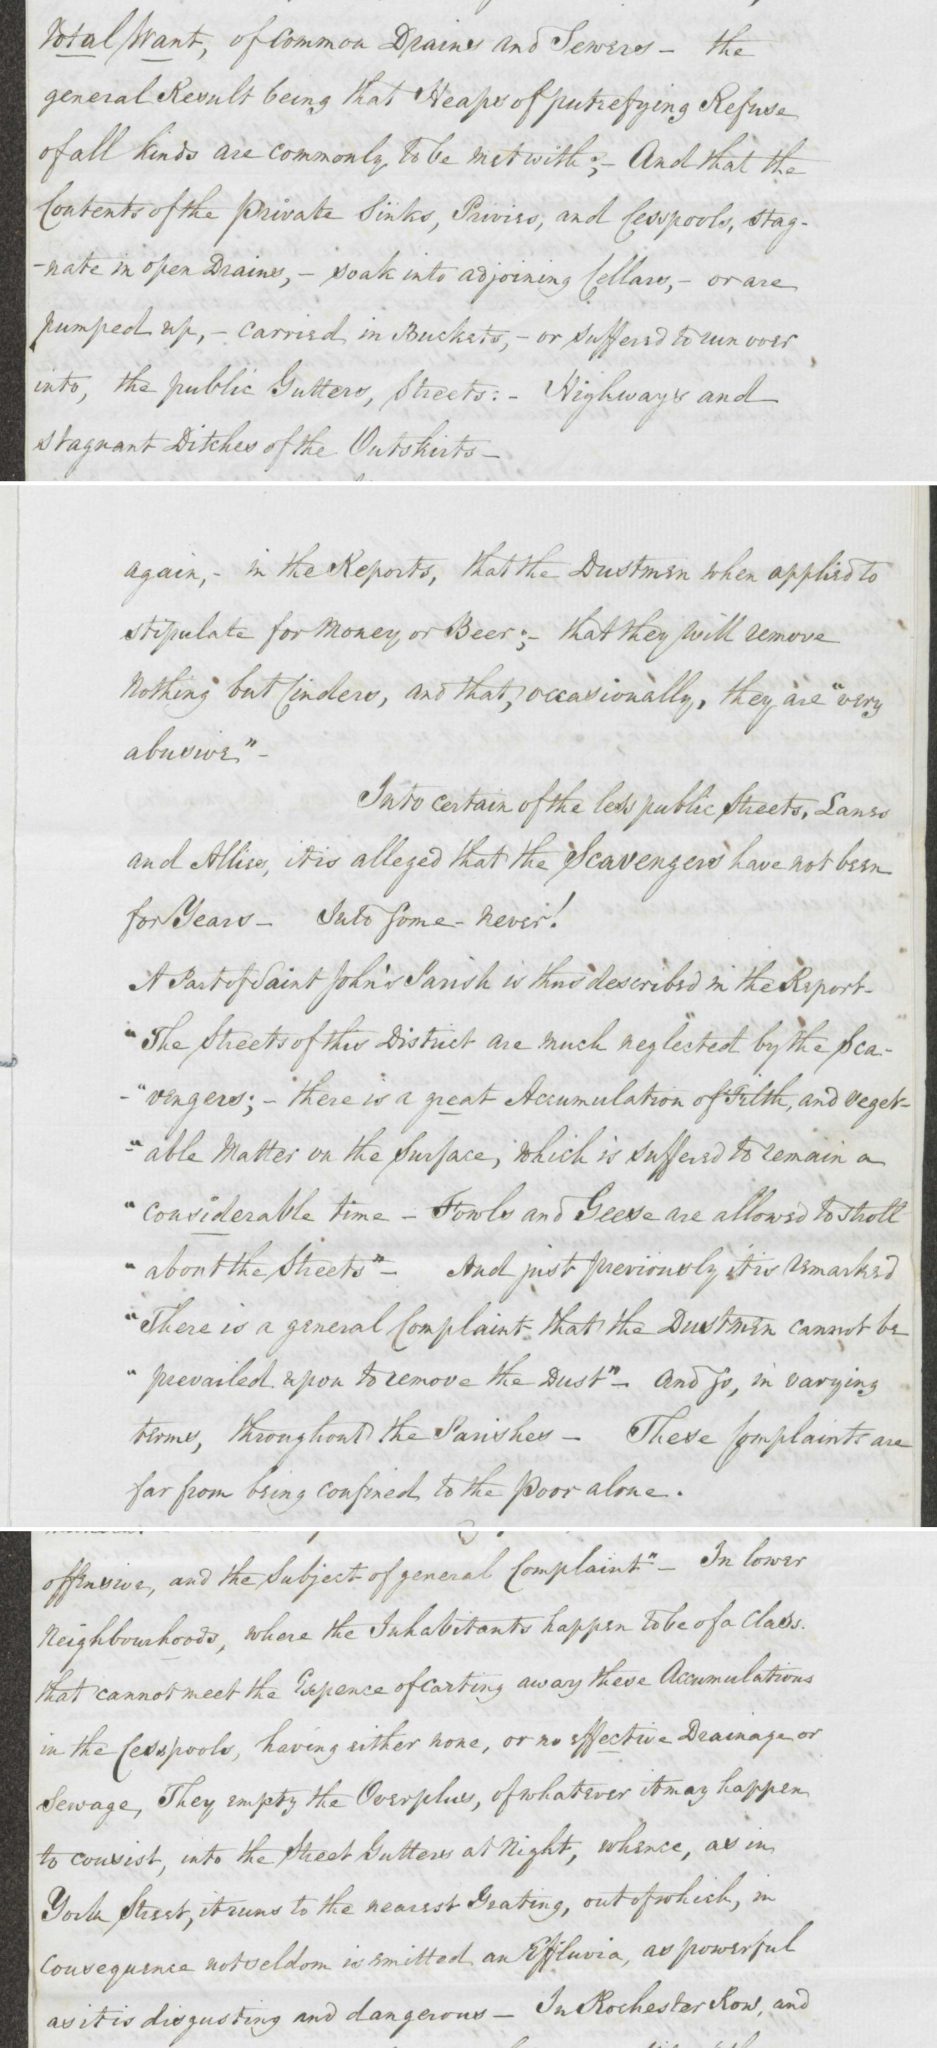 total Want, of common Drains and Sewers – the
general Result being that Heaps of putrefying Refuse
of all kinds are commonly to be met with; – And that the
Contents of the private Sinks, Privies, and Cesspools, stag-
-nate in open Drains, – soak into adjoining Cellars, – or are
pumped up, – carried in Buckets, – or suffered to run over
into, the public Gutters, Streets: – Highways and
stagnant Ditches of the Outskirts –
again, – in the Reports, that the Dustmen when applied to
stipulate for Money or Beer; – that they will remove
Nothing but Cinders, and that, occasionally, they are "very
abusive" –
Into certain of the less public Streets, Lanes
and Allies, it is alleged that the Scavengers have not been
for Years – Into some – never!
A Part of Saint John's Parish is thus described in the Report –
"The Streets of this District are much neglected by the Sca-
-"vengers; – there is a great Accumulation of Filth, and veget-
-"able Matter on the Surface, which is suffered to remain a
"considerable time – Fowls and Geese are allowed to stroll
"about the Streets" – And just previously it is remarked
"There is a general Complaint that the Dustmen cannot be
"prevailed upon to remove the Dust" – And so, in varying
terms, throughout the Parishes – These Complaints are
far from being confined to the Poor alone.
offensive, and the Subject of general Complaint" – In lower
Neighbourhoods, where the Inhabitants happen to be of a Class
that cannot meet the Expence of carting away these Accumulations
in the Cesspools, having either none, or no effective Drainage or
Sewage, They empty the Overplus, of whatever it may happen
to consist, into the Street Gutters at Night, whence, as in
York Street, it runs to the nearest Grating, out of which, in
consequence not seldom is emitted an Effluvia, as powerful
as it is disgusting and dangerous – In Rochester Row, and